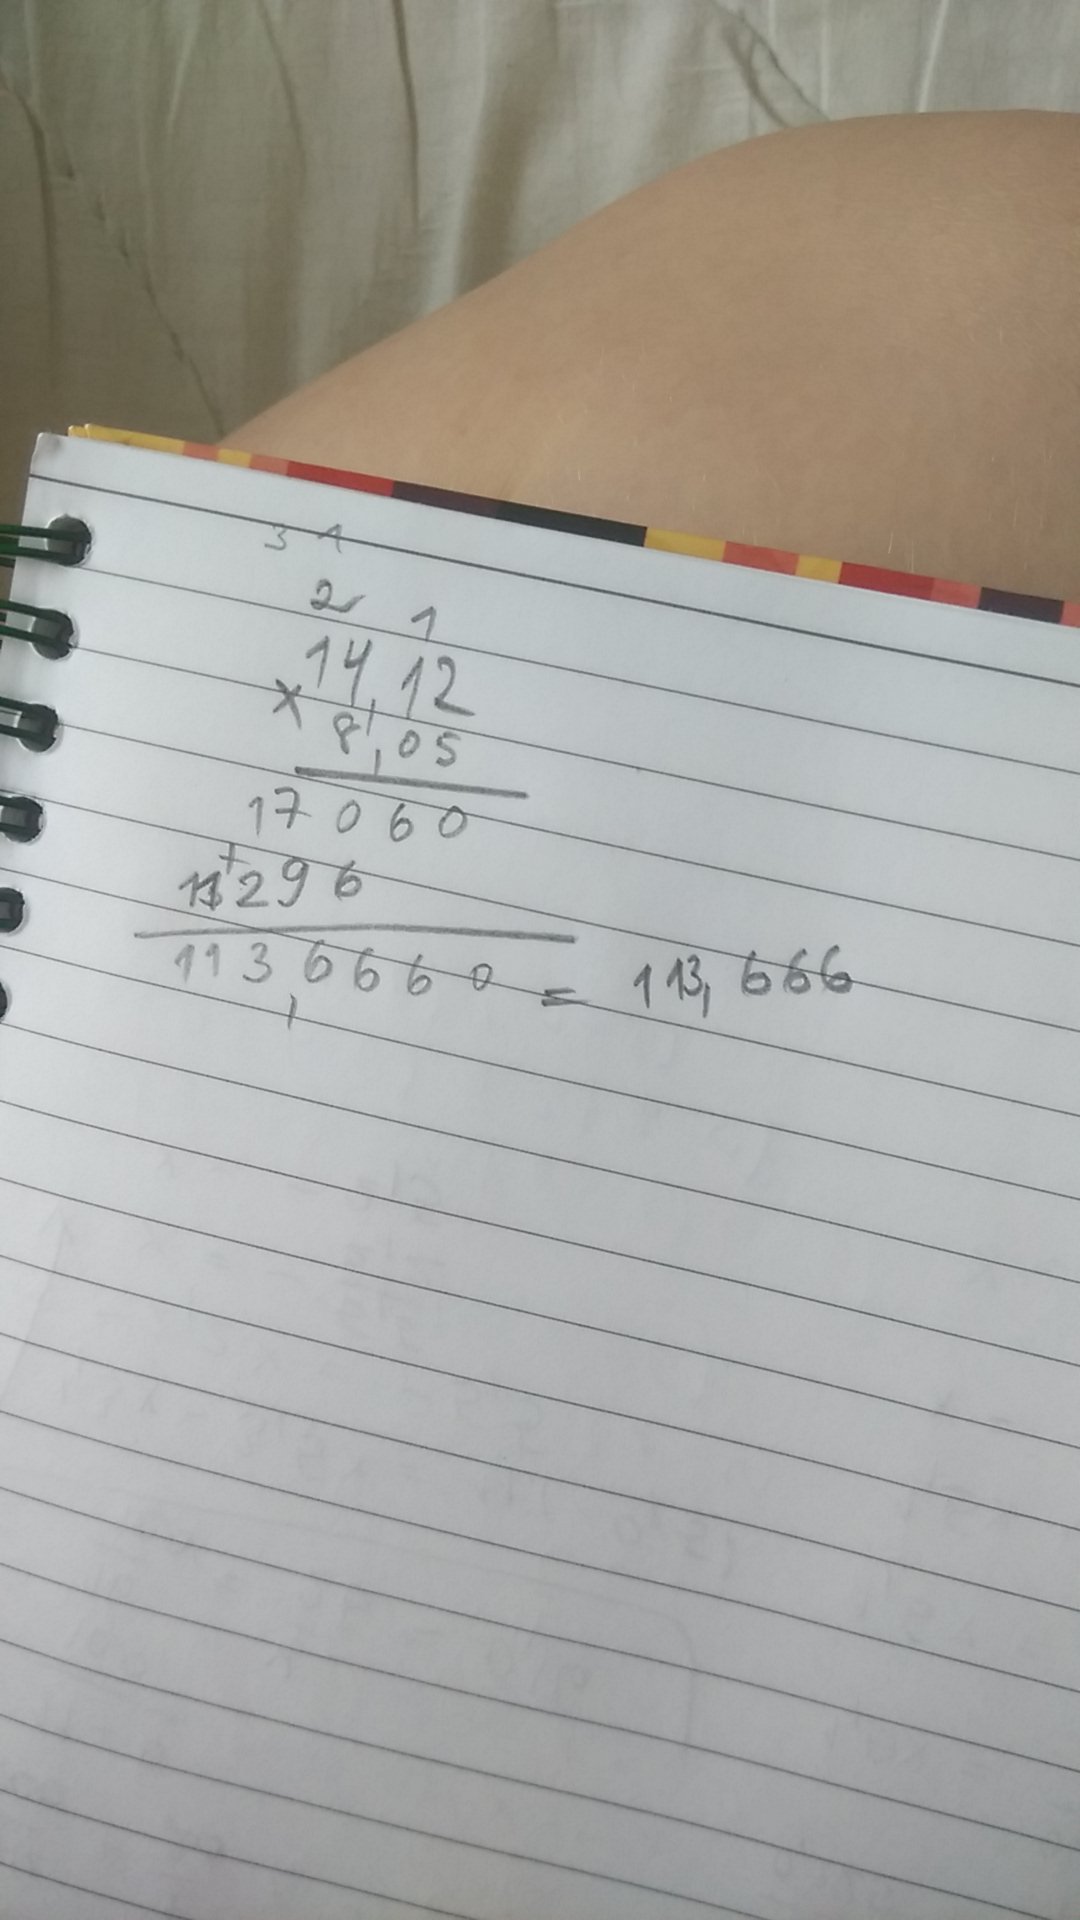 3 1
2 1
14,12
x 8,05
17060
+
11296
113,6660 = 113,666